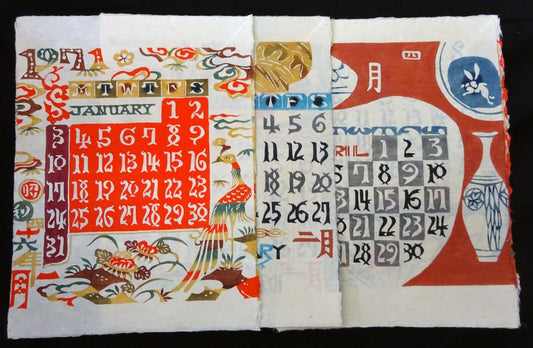 1971
M T W T F S
JANUARY 1 2
3 4 5 6 7 8 9
10 11 12 13 14 15 16
17 18 19 20 21 22 23
24 25 26 27 28 29 30
31
T F S
4 5 6
11 12 13
18 19 20
25 26 27
RY 二月
四月
RIL 1 2 3
7 8 9 10
14 15 16 17
21 22 23 24
28 29 30